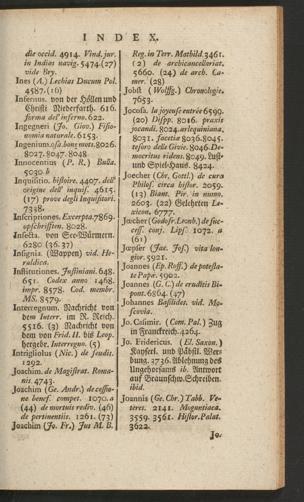 INDEX.
diæ occid. 4914. Vind. jur.
in Indias navig. 5474. (27)
vide Bry.
Ines (A.) Lechias Ducum Pol.
4587. (16)
Infernus. von der Höllen und
Christi Niederfarth. 616.
forma dell' inferno. 622.
Ingegneri (Jo. Giov.) Fisio-
nomia naturale. 6153.
Ingenium. osa. bons mots. 8026.
8027. 8047. 8048.
Innocentius (P. R.) Bulla.
5030. b
Inquisitio. histoire. 4407. dell'
origine dell' inquis. 4615.
(17) prove degli Inquisitori.
7338.
Inscriptiones. Excerpta. 7869.
opschriften. 8028.
Insecta. von See-Würmern.
6280 (36. 37)
Insignia. (Wappen) vid. He-
raldica.
Institutiones. Justiniani. 648.
651. Codex anno 1468.
impr. 8578. Cod. membr.
MS. 8579.
Interregnum. Nachricht von
dem Interr. im R. Reich.
5516. (3) Nachricht von
dem von Frid. II. bis Leop.
hergebr. Interregno. (5)
Intrigliolus (Nic.) de feudis.
1292.
Joachim. de Magistrat. Roma-
nis. 4743.
Joachim (Ge. Andr.) de cessio-
ne benef. compet. 1070. a
(44) de mortuis rediv. (46)
de pertinentiis. 1261. (73)
Joachim (Jo. Fr.) Jus M. B.
Reg. in Terr. Mathild. 3461.
(2) de archicancellariat.
5660. (24) de arch. Ca-
mer. (28)
Jobst (Wolffg.) Chronologie.
7653.
Jocosa. la joyeuse entrée 6599.
(20) Dispp. 8016. praxis
jocandi. 8024. arlequiniana.
8031. facetiæ 8036. 8045.
tesoro delle Givie. 8046. De-
mocritus ridens. 8049. Lust-
und Spiel-Haus. 8424.
Joecher (Chr. Gottl.) de cura
Philosf. circa histor. 2059.
(13) Biant. Pir. in numo.
2603. (22) Gelehrten Le-
xicon. 6777.
Jœcher (Godofr. Leonh.) de suc-
cess. conj. Lips. 1072. a
(61)
Jœpser (Jac. Jos.) vita lon-
gior. 5921.
Joannes (Ep. Roff.) de potesta-
te Papæ. 5902.
Joannes (G. C.) de eruditis Bi-
pont. 6864. (47)
Johannes Basilides. vid. Mo-
scovia.
Jo. Casimir. (Com. Pal.) Zug
in Franckreich. 4264.
Jo. Fridericus. (El. Saxon.)
Kayserl. und Päbstl. Wer-
bung. 3736. Ablehnung des
Ungehorsams ib. Antwort
auf Braunschw. Schreiben.
ibid.
Joannis (Ge. Chr.) Tabb. Ve-
teres. 2141. Moguntiaca.
3559. 3561. Histor. Palat.
3622.
Jo.